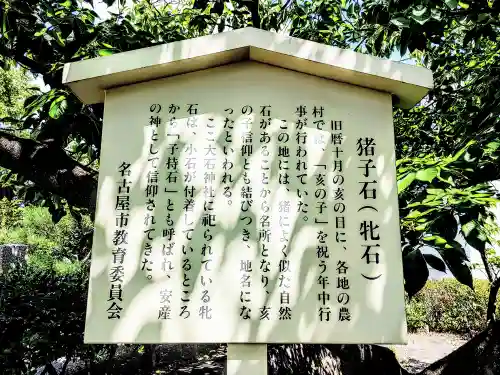 猪子石（牝石）
旧暦十月の亥の日に、各地の農
村では、「亥の子」を祝う年中行
事が行われていた。
この地には、猪によく似た自然
石があることから名所となり、亥
の子信仰とも結びつき、地名にな
ったといわれる。
ここ大石神社に祀られている牝
石は、小石が付着しているところ
から「子持石」とも呼ばれ、安産
の神として信仰されてきた。
名古屋市教育委員会